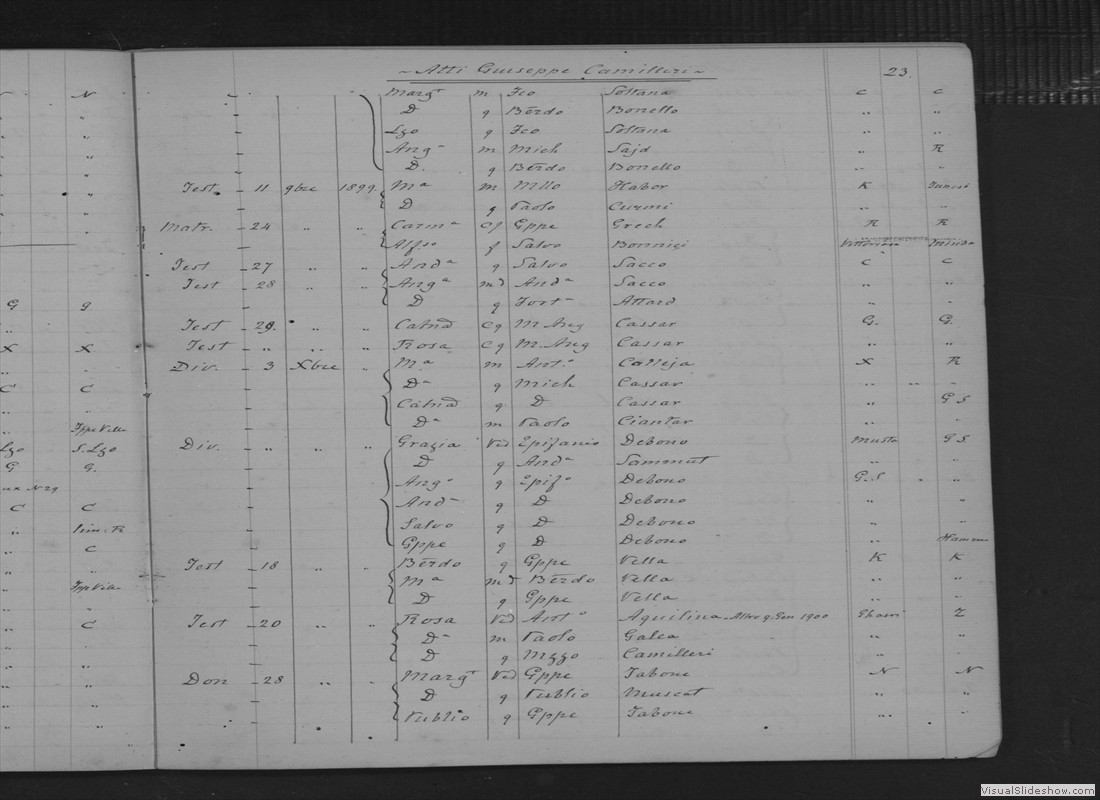 ~ Atti Giuseppe Camilleri ~ 23.
Margt m Fco Soltana C C
D g Berdo Bonello " "
Lzo g Fco Soltana " "
Ang m Mich Sajd " R
D. g Berdo Bonello " "
Test. 11 9bre 1899. Ma m Mllo Habor K
D g Paolo Curmi " "
Matr. 24 " " Carma Cf Gppe Grech R R
Alfso f Salvo Bonnici Vittoriosa Msida
Test 27 " " Anda g Salvo Sacco C C
Test 28 " " Anga md Anda Sacco " "
G g D g Fort Attard " "
Test 29. " " Catnа Cg M. Ang Cassar G. G.
Test " " " Rosa Cg M. Ang Cassar " "
X X Div. 3 Xbre " Ma m Anto Calleja X R
Da g Mich Cassar " "
C C Catna g D Cassar " G S
Da m Paolo Ciantar " "
Lzo S. Lzo Div. " " " Grazia Ved Epifanio Debono Musta G S
G G. D g Anda Sammut " "
Ango g Epifo Debono G. S "
C C And g D Debono " "
Salvo g D Debono " "
C Gppe g D Debono " Hamrun
Test 18 " " Berdo g Gppe Vella K K
Ma md Berdo Vella " "
D g Gppe Vella " "
C Test 20 " " Rosa Ved Anto Aquilina Altro 9. Gen 1900 Ghasri Z
Da m Paolo Galea " "
D g Mzzo Camilleri " "
Don 28 " " Margt Ved Gppe Tabone N N
D g Publio Muscat " "
Publio g Gppe Tabone " "
VisualSlideshow.com